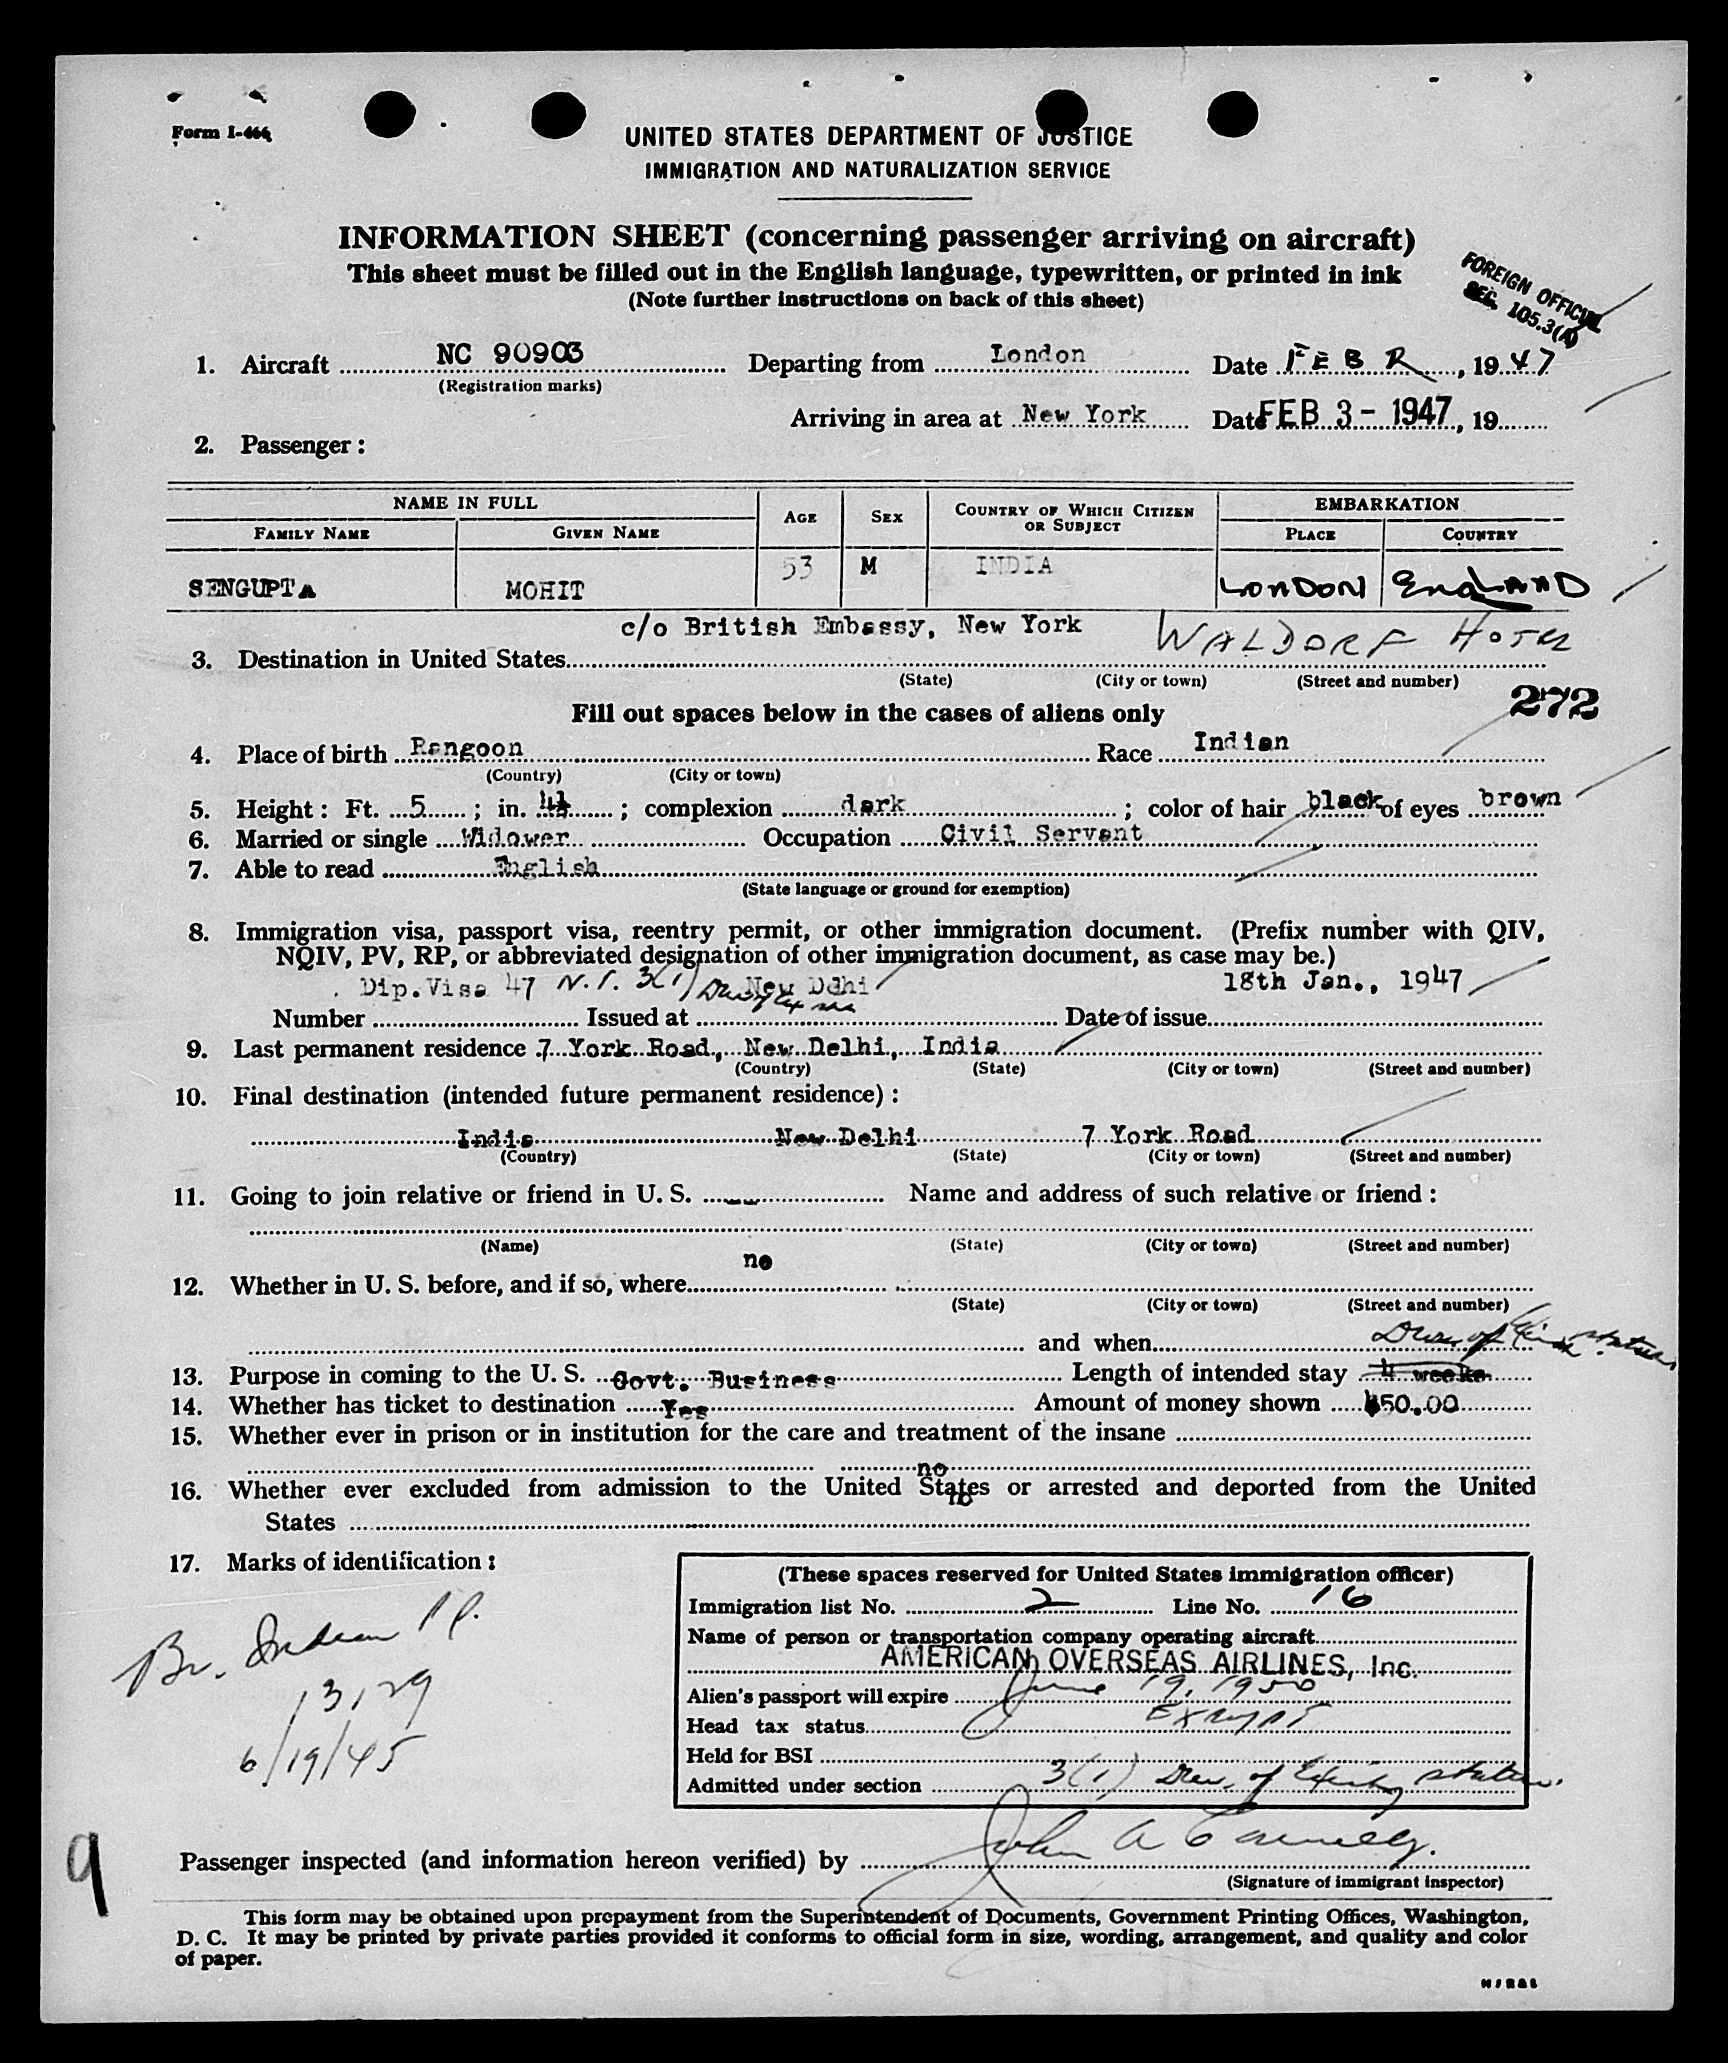 Form I-466
UNITED STATES DEPARTMENT OF JUSTICE
IMMIGRATION AND NATURALIZATION SERVICE
INFORMATION SHEET (concerning passenger arriving on aircraft)
This sheet must be filled out in the English language, typewritten, or printed in ink
(Note further instructions on back of this sheet)
FOREIGN OFFICIAL
SEC. 105.3(A)
1. Aircraft NC 90903 Departing from London Date FEBR, 1947
(Registration marks)
Arriving in area at New York Date FEB 3 - 1947, 19
2. Passenger:
NAME IN FULL AGE SEX COUNTRY OF WHICH CITIZEN OR SUBJECT EMBARKATION
FAMILY NAME GIVEN NAME PLACE COUNTRY
SENGUPTA MOHIT 53 M INDIA LONDON ENGLAND
c/o British Embassy, New York WALDORF HOTEL
3. Destination in United States
(State) (City or town) (Street and number)
272
Fill out spaces below in the cases of aliens only
4. Place of birth Rangoon Race Indian
(Country) (City or town)
5. Height: Ft. 5; in. 4; complexion dark; color of hair black of eyes brown
6. Married or single Widower Occupation Civil Servant
7. Able to read English
(State language or ground for exemption)
8. Immigration visa, passport visa, reentry permit, or other immigration document. (Prefix number with QIV,
NQIV, PV, RP, or abbreviated designation of other immigration document, as case may be.)
Dip.Visa 47 3(1) New Delhi 18th Jan., 1947
Number Issued at Date of issue
9. Last permanent residence 7 York Road, New Delhi, India
(Country) (State) (City or town) (Street and number)
10. Final destination (intended future permanent residence):
India New Delhi 7 York Road
(Country) (State) (City or town) (Street and number)
11. Going to join relative or friend in U. S. -- Name and address of such relative or friend:
(Name) (State) (City or town) (Street and number)
no
12. Whether in U. S. before, and if so, where
(State) (City or town) (Street and number)
and when Dur. of status
13. Purpose in coming to the U. S. Govt. Business Length of intended stay 4 weeks
14. Whether has ticket to destination Yes Amount of money shown 50.00
15. Whether ever in prison or in institution for the care and treatment of the insane
no
16. Whether ever excluded from admission to the United States or arrested and deported from the United
no
States
17. Marks of identification:
Br. Indian PP.
13129
6/19/45
(These spaces reserved for United States immigration officer)
Immigration list No. 2 Line No. 16
Name of person or transportation company operating aircraft
AMERICAN OVERSEAS AIRLINES, Inc.
Alien's passport will expire June 19, 1950
Head tax status Exempt
Held for BSI
Admitted under section 3(1) Dur. of status.
9
Passenger inspected (and information hereon verified) by John A
(Signature of immigrant inspector)
This form may be obtained upon prepayment from the Superintendent of Documents, Government Printing Offices, Washington,
D. C. It may be printed by private parties provided it conforms to official form in size, wording, arrangement, and quality and color
of paper.